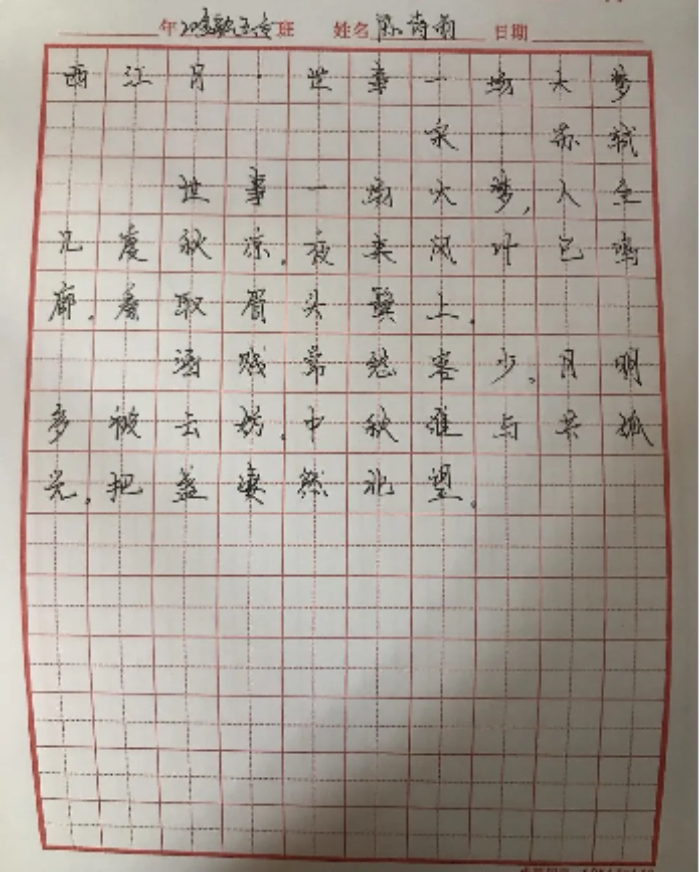 年 班 姓名 陈 雨 日期
西江月·世事一场大梦
宋 苏轼
世事一场大梦,人生
几度秋凉。夜来风叶已鸣
廊。看取眉头鬓上。
酒贱常愁客少,月明
多被云妨。中秋谁与共孤
光,把盏凄然北望。